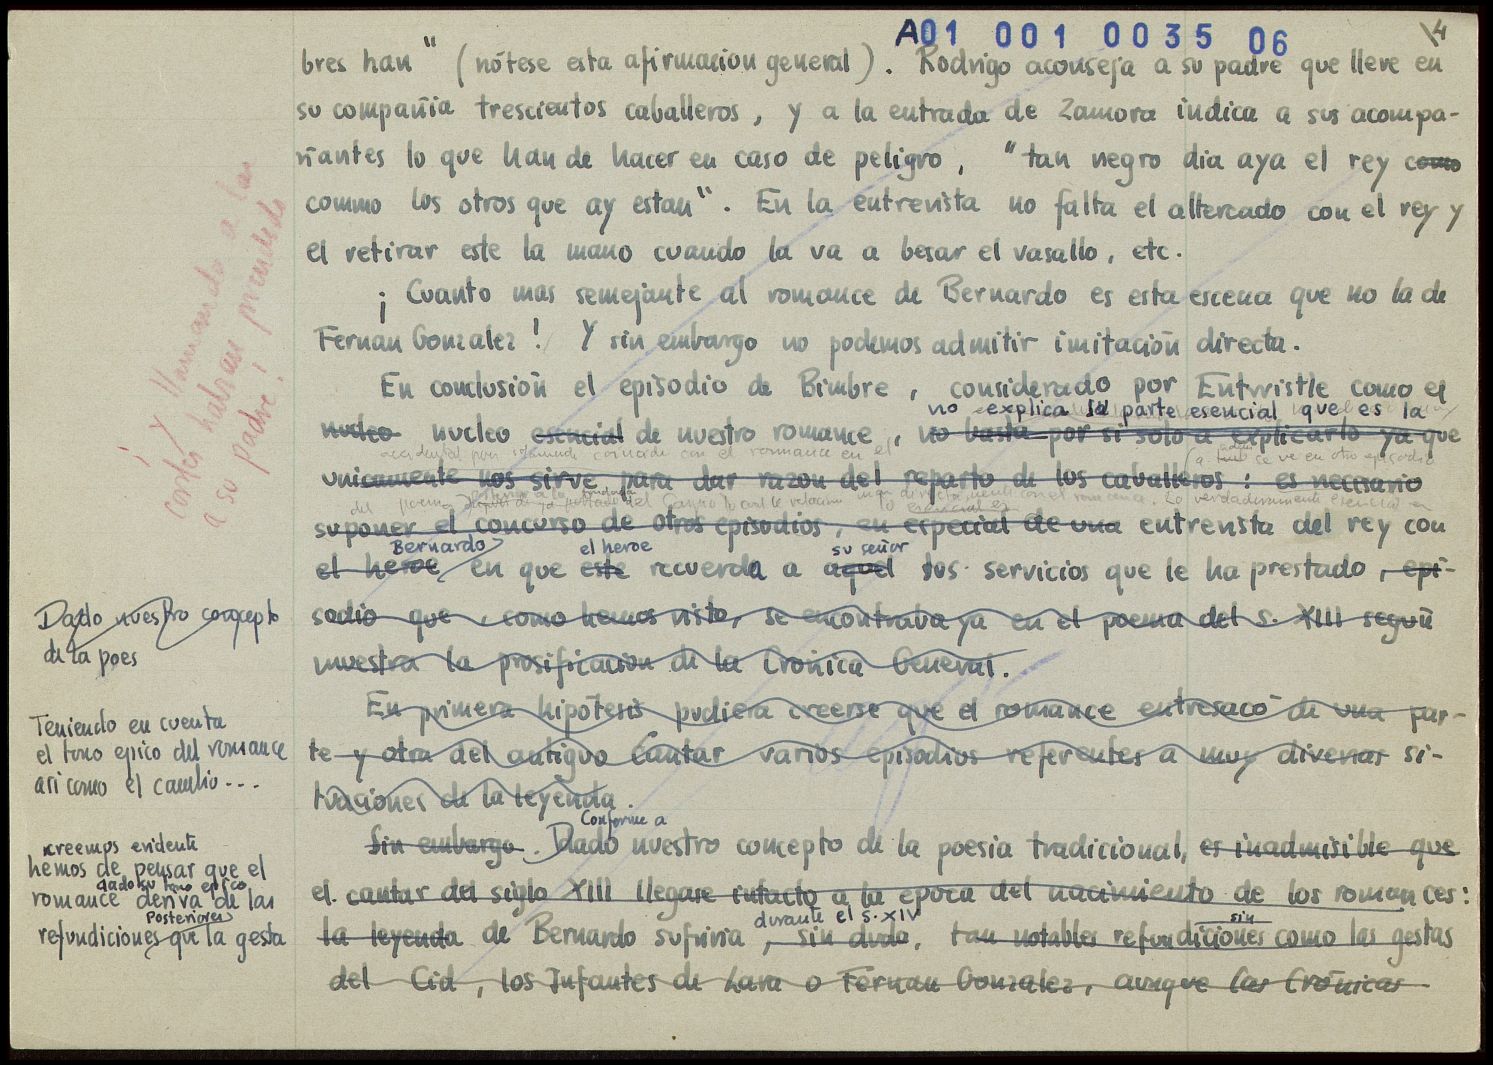 A01 001 0035 06
4
bres han" (nótese esta afirmacion general). Rodrigo aconseja a su padre que lleve en
su compañia trescientos caballeros, y a la entrada de Zamora indica a sus acompa-
ñantes lo que han de hacer en caso de peligro, "tan negro dia aya el rey como
commo los otros que ay estan". En la entrevista no falta el altercado con el rey y
el retirar este la mano cuando la va a besar el vasallo, etc.
¡Cuanto mas semejante al romance de Bernardo es esta escena que no la de
Fernan Gonzalez! Y sin embargo no podemos admitir imitación directa.
En conclusión el episodio de Bimbre, considerado por Entwistle como el
no explica la parte esencial que es la
nucleo nucleo esencial de nuestro romance, no basta por si solo a explicarlo ya que
accidental pues coincide con el romance en el
se ve en otro episodio
unicamente nos sirve para dar razon del reparto de los caballeros: es necesario
del poema
suponer el concurso de otros episodios, en especial de una entrevista del rey con
Bernardo el heroe su señor
el heroe en que este recuerda a aquel sus servicios que le ha prestado, epi-
sodio que, como hemos visto, se encontraba ya en el poema del s. XIII según
muestra la prosificacion de la Crónica General.
En primera hipótesis pudiera creerse que el romance entresacó de una par-
te y otra del antiguo Cantar varios episodios referentes a muy diversas si-
tuaciones de la leyenda.
Conforme a
Sin embargo. Dado nuestro concepto de la poesia tradicional, es inadmisible que
el cantar del siglo XIII llegase intacto a la epoca del nacimiento de los romances:
durante el s. XIV sin
la leyenda de Bernardo sufriria, sin duda, tan notables refundiciones como las gestas
del Cid, los Infantes de Lara o Fernan Gonzalez, aunque las Crónicas
¡Y llamando a las
cortes habian prendido
a su padre!
Dado nuestro concepto
de la poes
Teniendo en cuenta
el tono epico del romance
asi como el cambio...
creemos evidente
hemos de pensar que el
dado su tono epico
romance deriva de las
Posteriores
refundiciones que la gesta